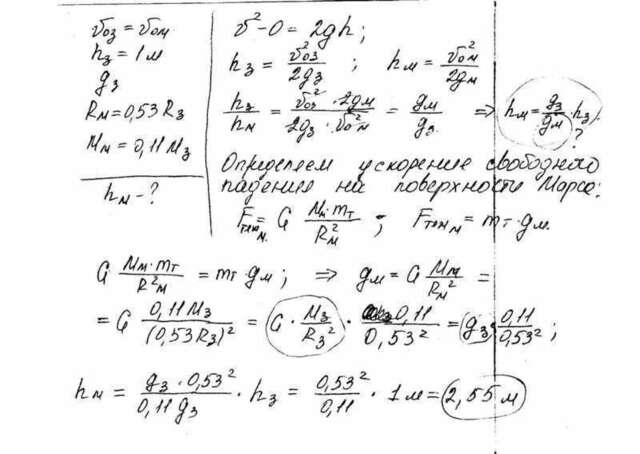 v₀з = v₀м
hз = 1 м
gз
Rм = 0,53 Rз
Mм = 0,11 Mз
hм - ?
v² - 0 = 2gh;
hз = v₀з²/2gз ; hм = v₀м²/2gм
hз/hм = v₀з² · 2gм / 2gз · v₀м² = gм/gз ⇒ hм = gз/gм · hз).
?
Определяем ускорение свободного
падения на поверхности Марса:
Fтяж м = G Mм·mт/Rм² ; Fтяж м = mт·gм.
G Mм·mт/R²м = mт gм ; ⇒ gм = G Mм/Rм² =
= G 0,11 Mз/(0,53 Rз)² = G · Mз/Rз² · 0,11/0,53² = gз · 0,11/0,53² ;
hм = gз · 0,53²/0,11 gз · hз = 0,53²/0,11 · 1 м = 2,55 м